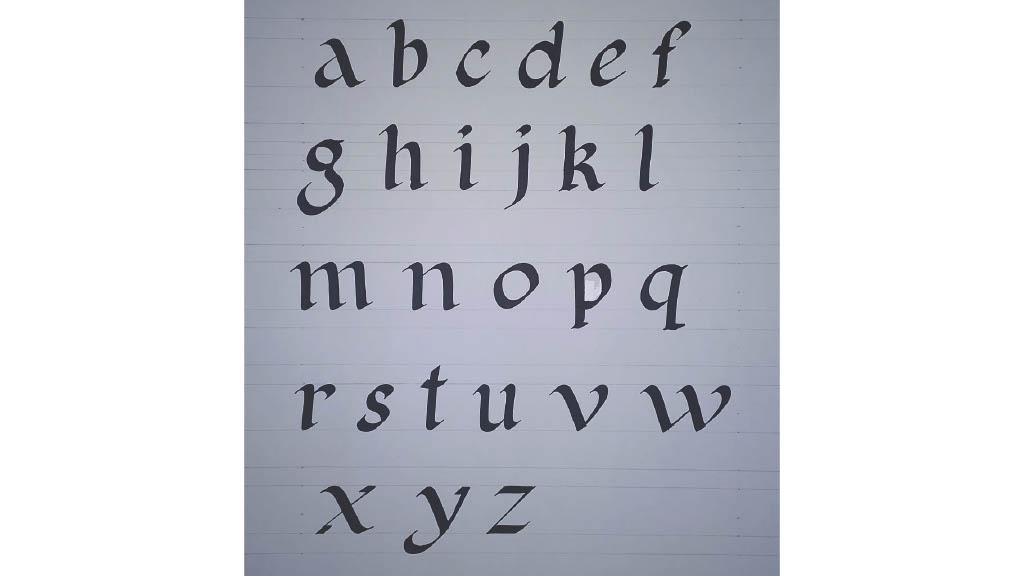 a b c d e f
g h i j k l
m n o p q
r s t u v w
x y z